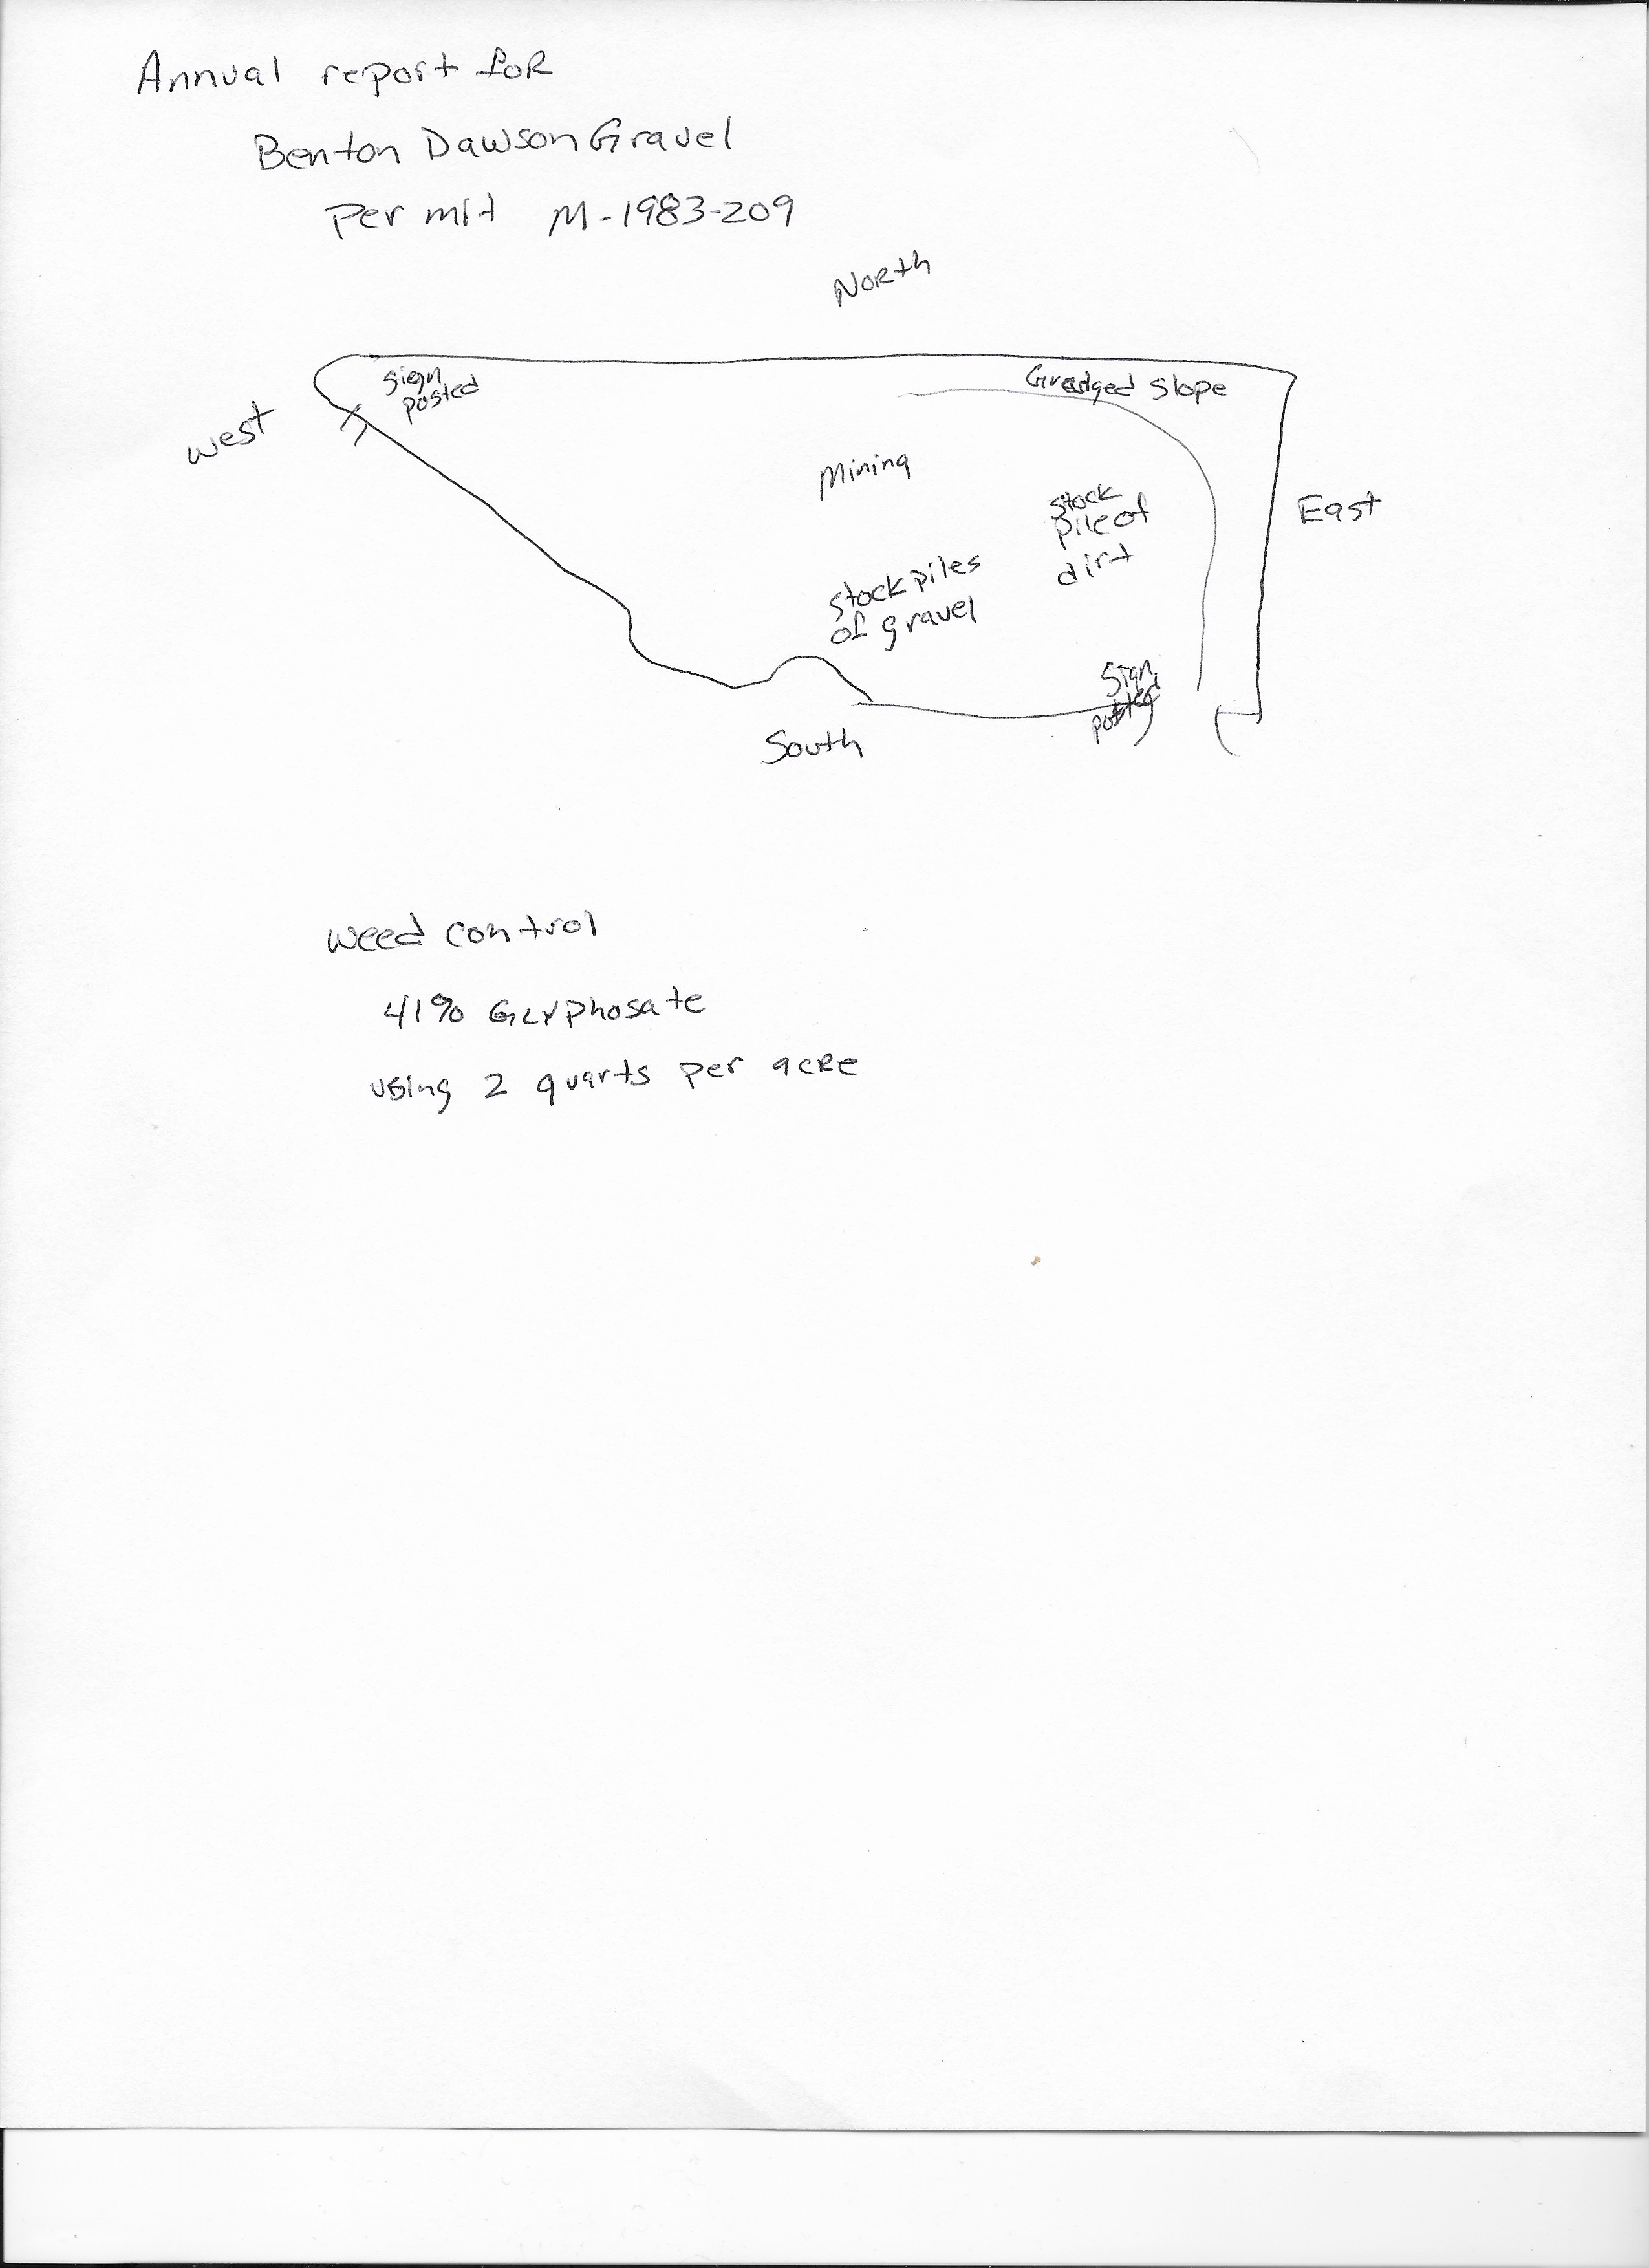 Annual report for
Benton Dawson Gravel
Permit M-1983-209
North
sign
posted
Gradged slope
west
Mining
stock
pile of
dirt
East
stockpiles
of gravel
Sign
posted
South
weed control
41% Glyphosate
using 2 quarts per acre